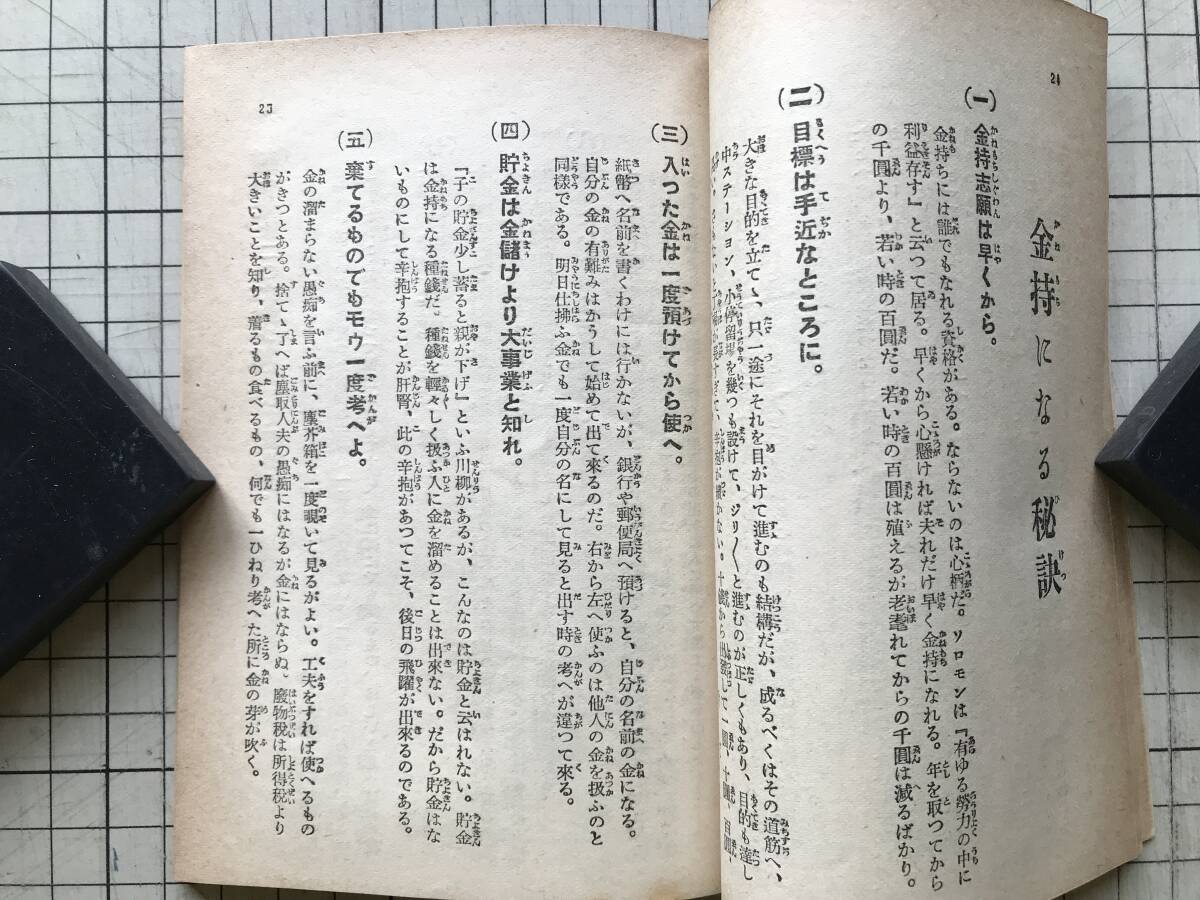 24
金持になる秘訣
(一) 金持志願は早くから。
金持ちには誰でもなれる資格がある。ならないのは心柄だ。ソロモンは『有ゆる勞力の中に
利益存す』と云つて居る。早くから心懸ければ夫れだけ早く金持になれる。年を取つてから
の千圓より、若い時の百圓だ。若い時の百圓は殖えるが老耄れてからの千圓は減るばかり。
(二) 目標は手近なところに。
大きな目的を立てゝ、只一途にそれを目がけて進むのも結構だが、成るべくはその道筋へ、
中ステーション、小停留場を幾つも設けて、ジリ〳〵と進むのが正しくもあり、目的も達し
(三) 入つた金は一度預けてから使へ。
紙幣へ名前を書くわけには行かないが、銀行や郵便局へ預けると、自分の名前の金になる。
自分の金の有難みはかうして始めて出て來るのだ。右から左へ使ふのは他人の金を扱ふのと
同樣である。明日仕拂ふ金でも一度自分の名にして見ると出す時の考へが違つて來る。
(四) 貯金は金儲けより大事業と知れ。
『子の貯金少し蓄ると親が下げ』といふ川柳があるが、こんなのは貯金と云はれない。貯金
は金持になる種錢だ。種錢を輕々しく扱ふ人に金を溜めることは出來ない。だから貯金はな
いものにして辛抱することが肝腎、此の辛抱があつてこそ、後日の飛躍が出來るのである。
(五) 棄てるものでもモウ一度考へよ。
金の溜まらない愚痴を言ふ前に、塵芥箱を一度覗いて見るがよい。工夫をすれば使へるもの
がきつとある。捨てゝ了へば塵取人夫の愚痴にはなるが金にはならぬ。廢物税は所得税より
大きいことを知り、着るもの食べるもの、何でも一ひねり考へた所に金の芽が吹く。
25